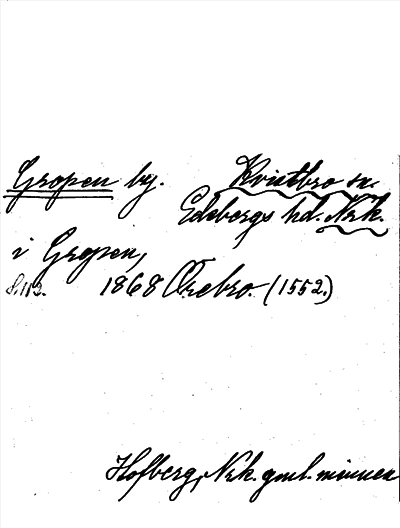 Gropen by. Kvistbro sn.
Edsbergs hd. Nrk.
i Gropen,
S. 113. 1868 Örebro. (1552.)
Hofberg, Nrk. gml. minnen